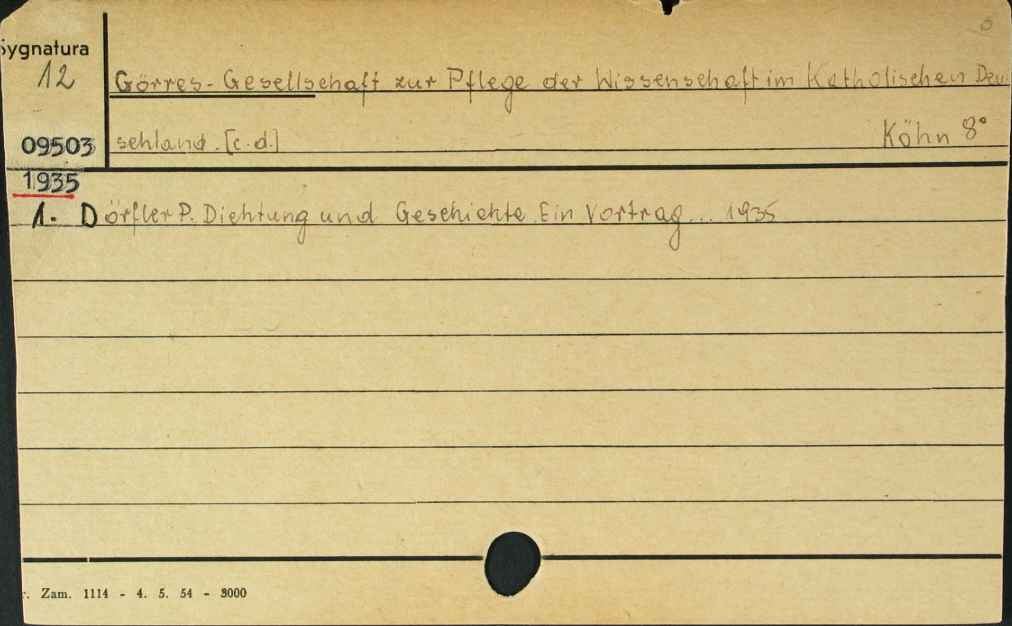 Sygnatura
12
Görres-Gesellschaft zur Pflege der Wissenschaft im Katholischen Deu
09503 schland. [c.d.] Köhn 8°
1935
1. Dörfler P. Dichtung und Geschichte. Ein Vortrag... 1935
Zam. 1114 - 4. 5. 54 - 3000